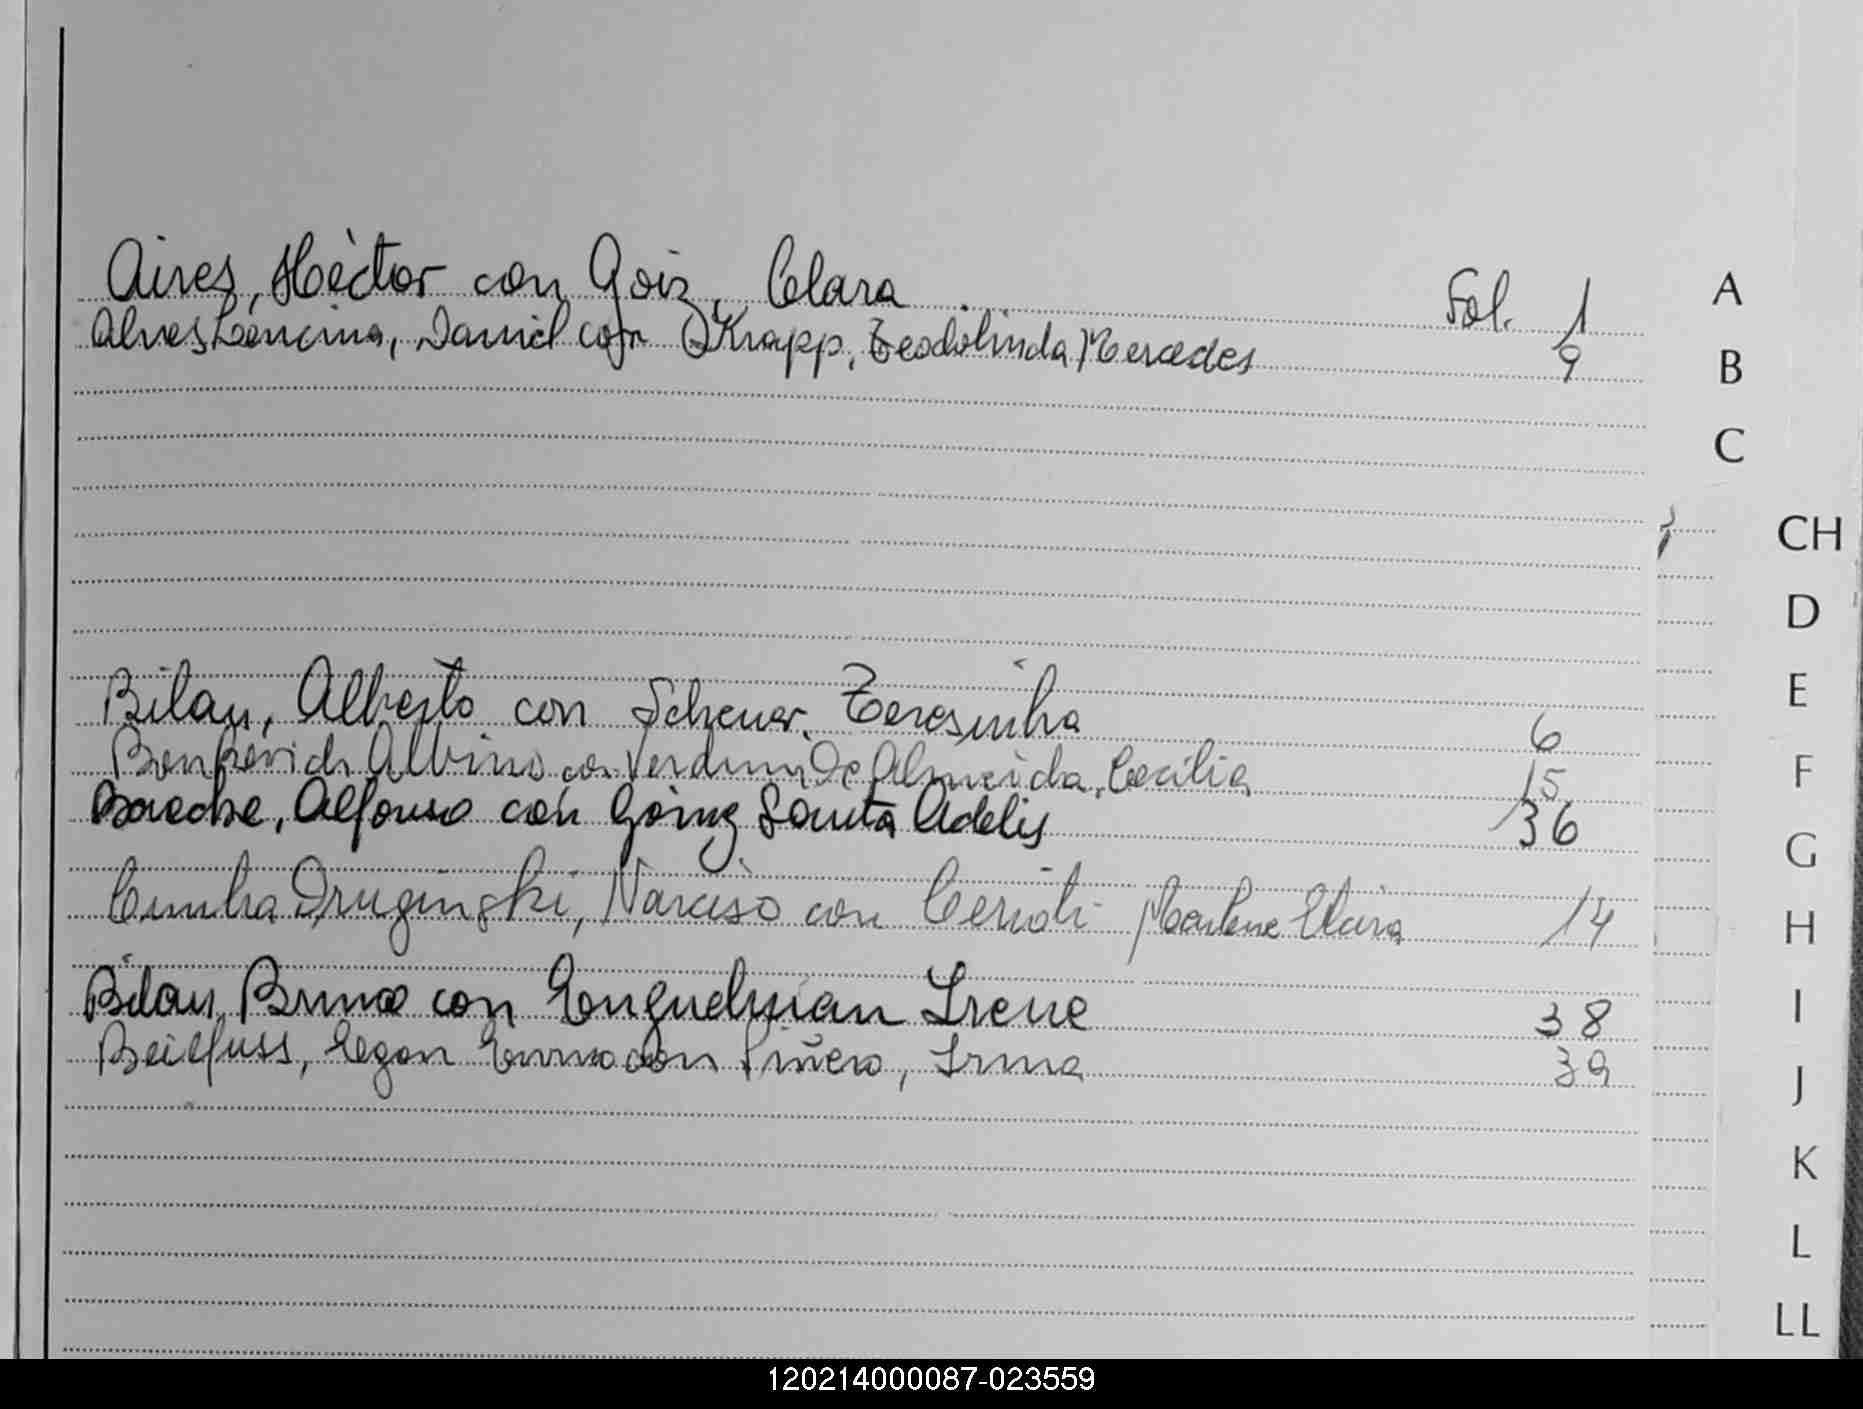 Aires, Hèctor con Goiz, Clara Fol. 1
Alves Lencina, Daniel con Knapp, Teodolinda Mercedes 9
Bilau, Alberto con Scheuer, Teresinha 6
Albino con Verdum De Almeida, Cecilia 15
Alfonso con Göring Sauta Adelis 36
Cunha Druginski, Narciso con Cerioli Marlene Clara 14
Bilau, Bruno con Enguelman Irene 38
Beilfuss, Egon Erno con Piñero, Irma 39
A
B
C
CH
D
E
F
G
H
I
J
K
L
LL
120214000087-023559